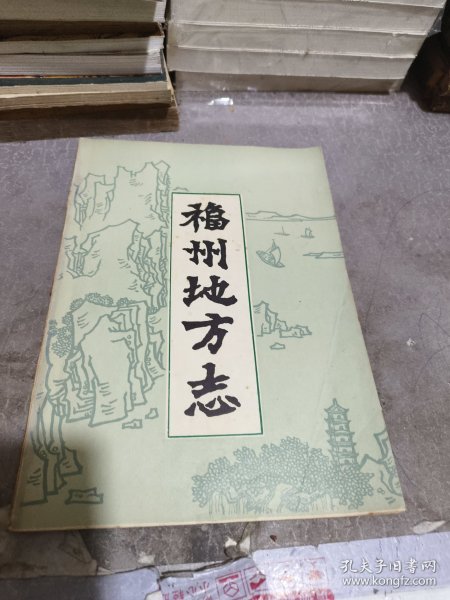 福州地方志
孔夫子旧书网
www.kongfz.com